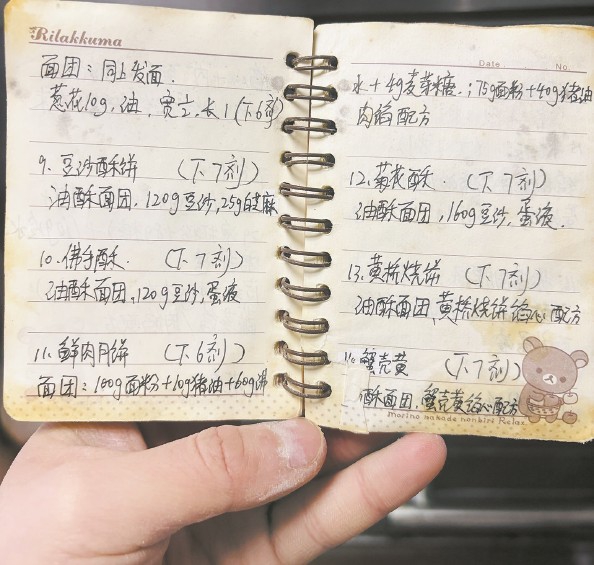 Rilakkuma
面团：同上发面.
葱花10g，油，宽立，长1(下6剂)
9. 豆沙酥饼 (下7剂)
油酥面团，120g豆沙，25g白芝麻
10. 佛手酥. (下7剂)
油酥面团，120g豆沙，蛋液
11. 鲜肉月饼 (下6剂)
面团：100g面粉+10g猪油+60g沸
Date No.
水+4g麦芽糖.；75g面粉+40g猪油
肉馅配方
12. 菊花酥. (下7剂)
油酥面团，160g豆沙，蛋液.
13. 黄桥烧饼 (下7剂)
油酥面团，黄桥烧饼馅心配方
蟹壳黄 (下7剂)
酥面团，蟹壳黄馅心配方
nonbiri Relax